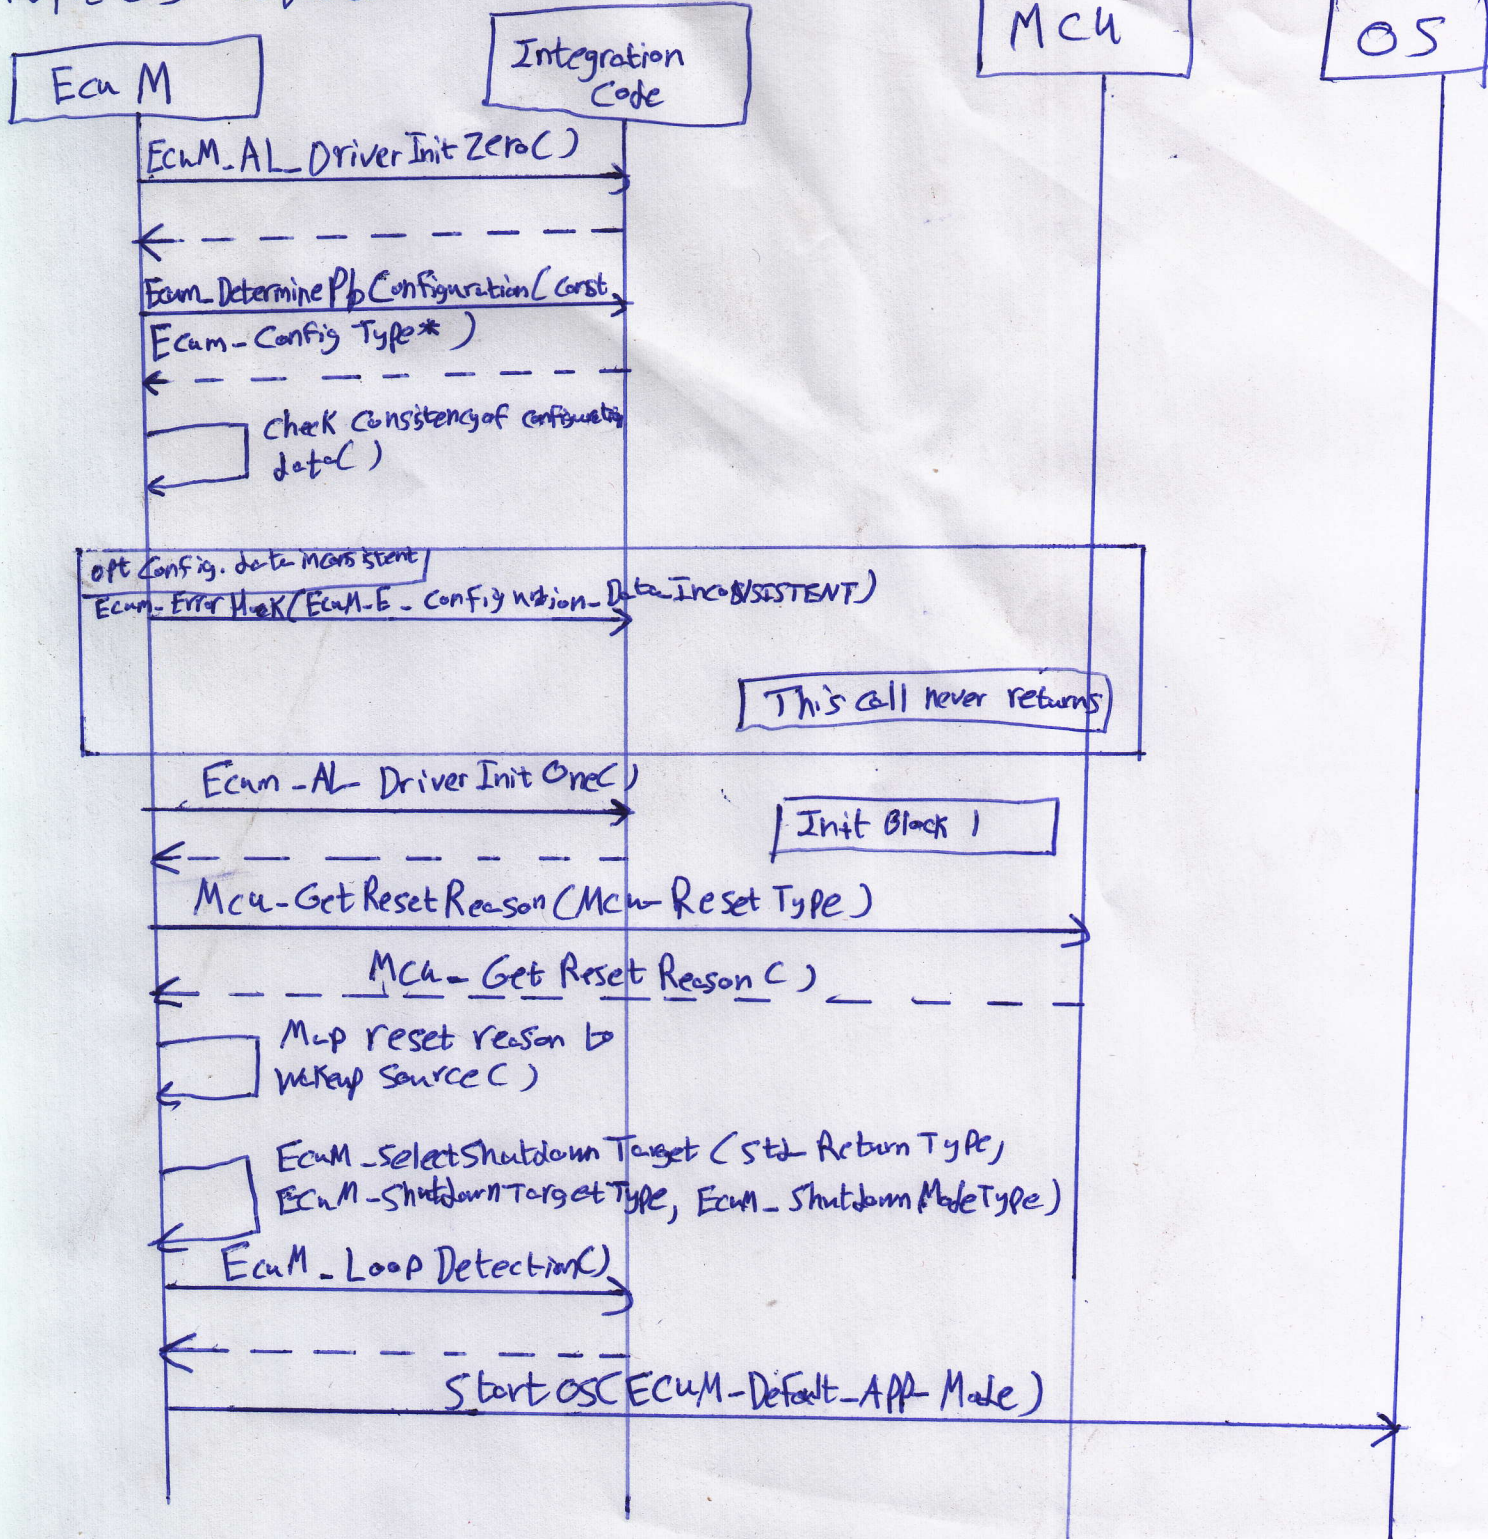 Ecu M
Integration
Code
MCU
OS
EcuM_AL_DriverInitZero()
Ecum_DeterminePbConfiguration(const
Ecum_Config Type*)
check Consistency of configuration
data()
opt Config. data inconsistent
Ecum_Error Hook(EcuM_E_configuration_Data_InconSISTENT)
This call never returns
Ecum_AL_DriverInitOne()
Init Block 1
Mcu_GetResetReason(Mcu_ResetType)
MCU_GetResetReason()
Map reset reason to
wakeup source()
EcuM_SelectShutdownTarget(std_ReturnType,
EcuM_ShutdownTargetType, EcuM_ShutdownModeType)
EcuM_LoopDetection()
StartOS(ECUM_Default_APP_Mode)